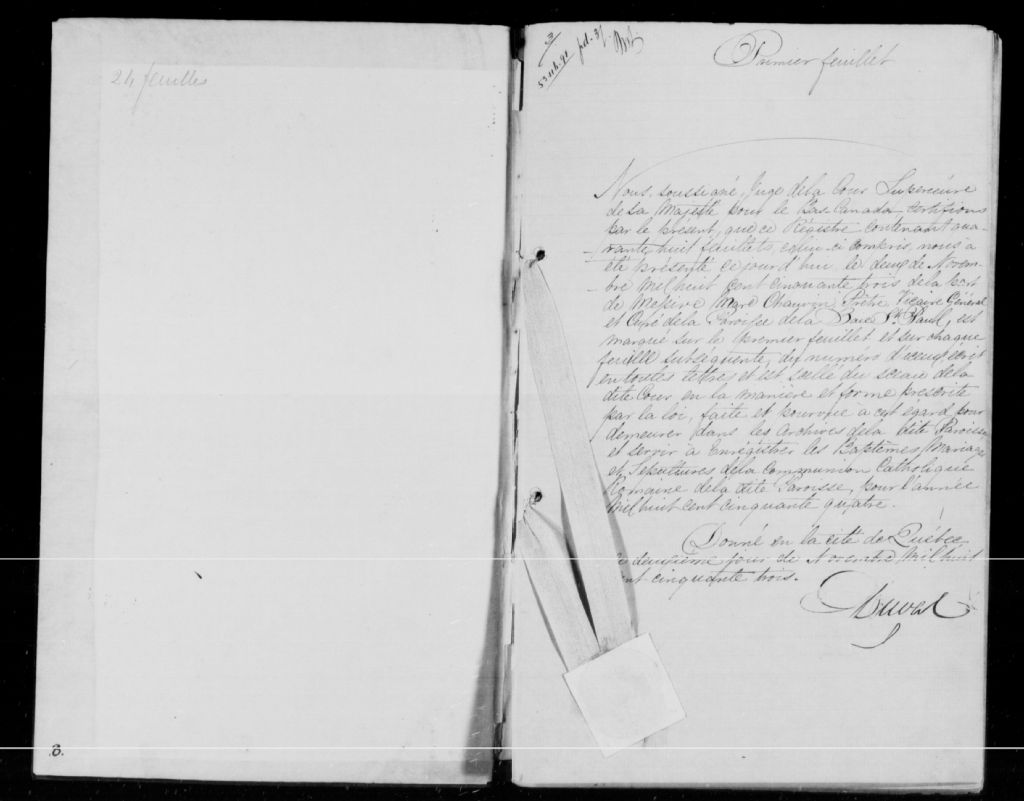 24 feuilles
3
Premier feuillet
Nous, soussigné, Juge de la Cour Supérieure
de Sa Majesté pour le Bas Canada certifions
par le présent, que ce Régistre contenant qua-
rante huit feuillets, celui-ci compris, nous à
été présenté cejourd'hui le deux de Novem-
bre mil huit cent cinquante trois de la part
de Messire Marc Chauvin Prêtre Vicaire Général
et Curé de la Paroisse de la Baie St. Paul, est
marqué sur le premier feuillet et sur chaque
feuille subséquente, du numéro d'iceux écrit
en toutes lettres et est scellé du sceau de la
dite Cour en la manière et forme prescrite
par la loi, faite et pourvue à cet égard pour
demeurer dans les archives de la dite Paroisse
et servir à Enrégistrer les Baptêmes, Mariages
et Sépultures de la Communion Catholique
Romaine de la dite Paroisse, pour l'année
Mil huit cent cinquante quatre.
Donné en la cité de Québec
le deuxième jour de Novembre Mil huit
cent cinquante trois.
Duval
8.